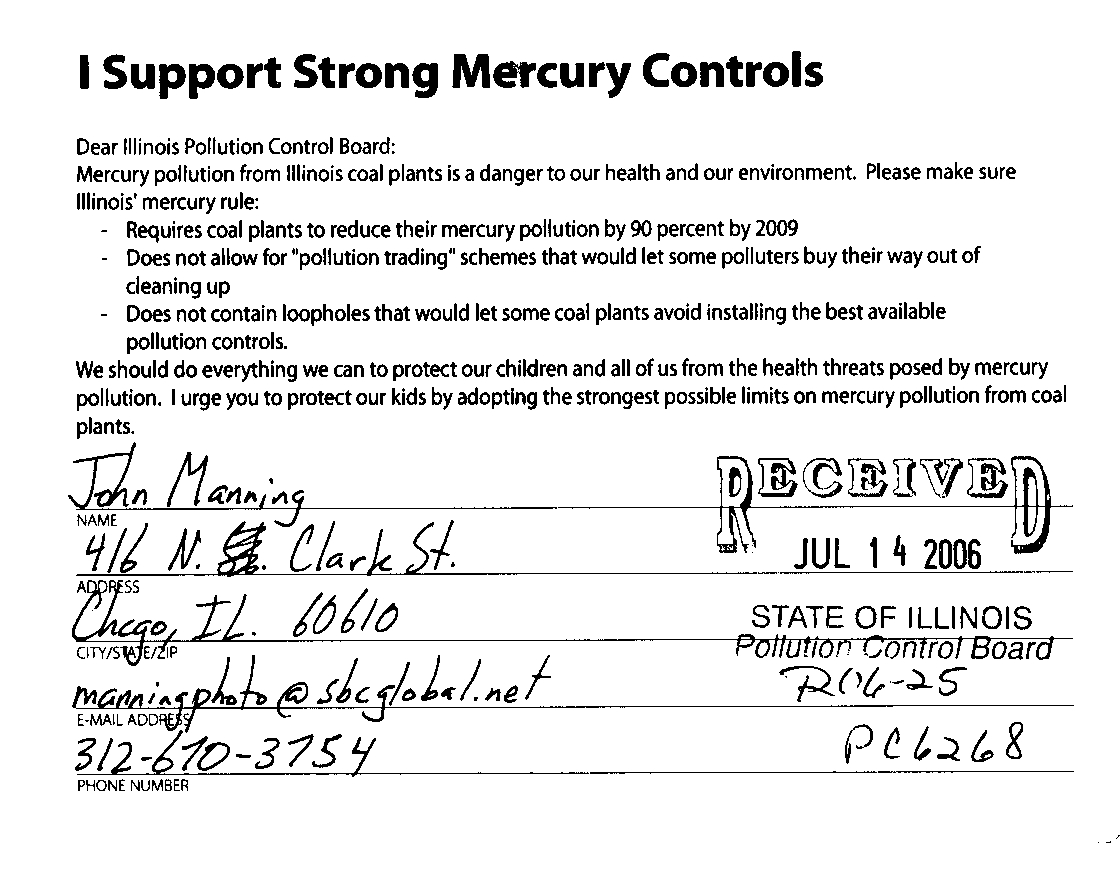 I Support Strong Mercury Controls
Dear Illinois Pollution Control Board:
Mercury pollution from Illinois coal plants is a danger to our health and our environment. Please make sure
Illinois' mercury rule:
- Requires coal plants to reduce their mercury pollution by 90 percent by 2009
- Does not allow for "pollution trading" schemes that would let some polluters buy their way out of
cleaning up
- Does not contain loopholes that would let some coal plants avoid installing the best available
pollution controls.
We should do everything we can to protect our children and all of us from the health threats posed by mercury
pollution. I urge you to protect our kids by adopting the strongest possible limits on mercury pollution from coal
plants.
John Manning
RECEIVED
NAME
416 N. Clark St.
JUL 14 2006
ADDRESS
Chcgo, IL. 60610
STATE OF ILLINOIS
CITY/STATE/ZIP
Pollution Control Board
manningphoto@sbcglobal.net
R06-25
E-MAIL ADDRESS
312-670-3754
PC6268
PHONE NUMBER